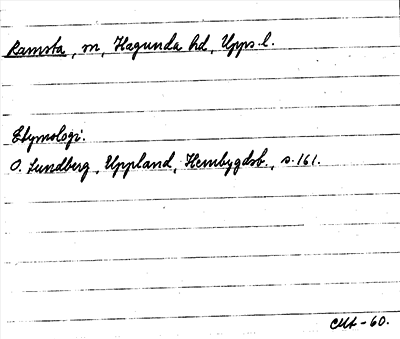 Ramsta, sn, Hagunda hd, Upps. l.
Etymologi.
O. Lundberg, Uppland, Hembygdsb., s. 161.
-60.